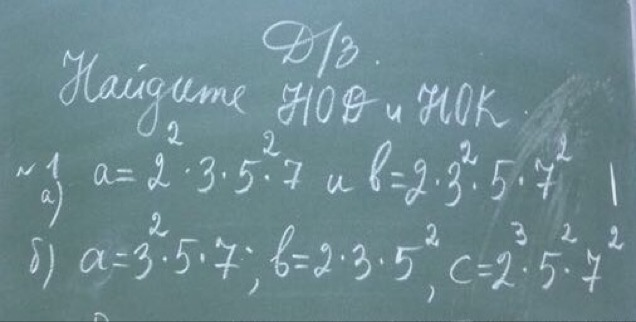 Д/З.
Найдите НОД и НОК.
№1 a) a = 2² · 3 · 5² · 7 и b = 2 · 3² · 5 · 7²
б) a = 3² · 5 · 7; b = 2 · 3 · 5², c = 2³ · 5² · 7²